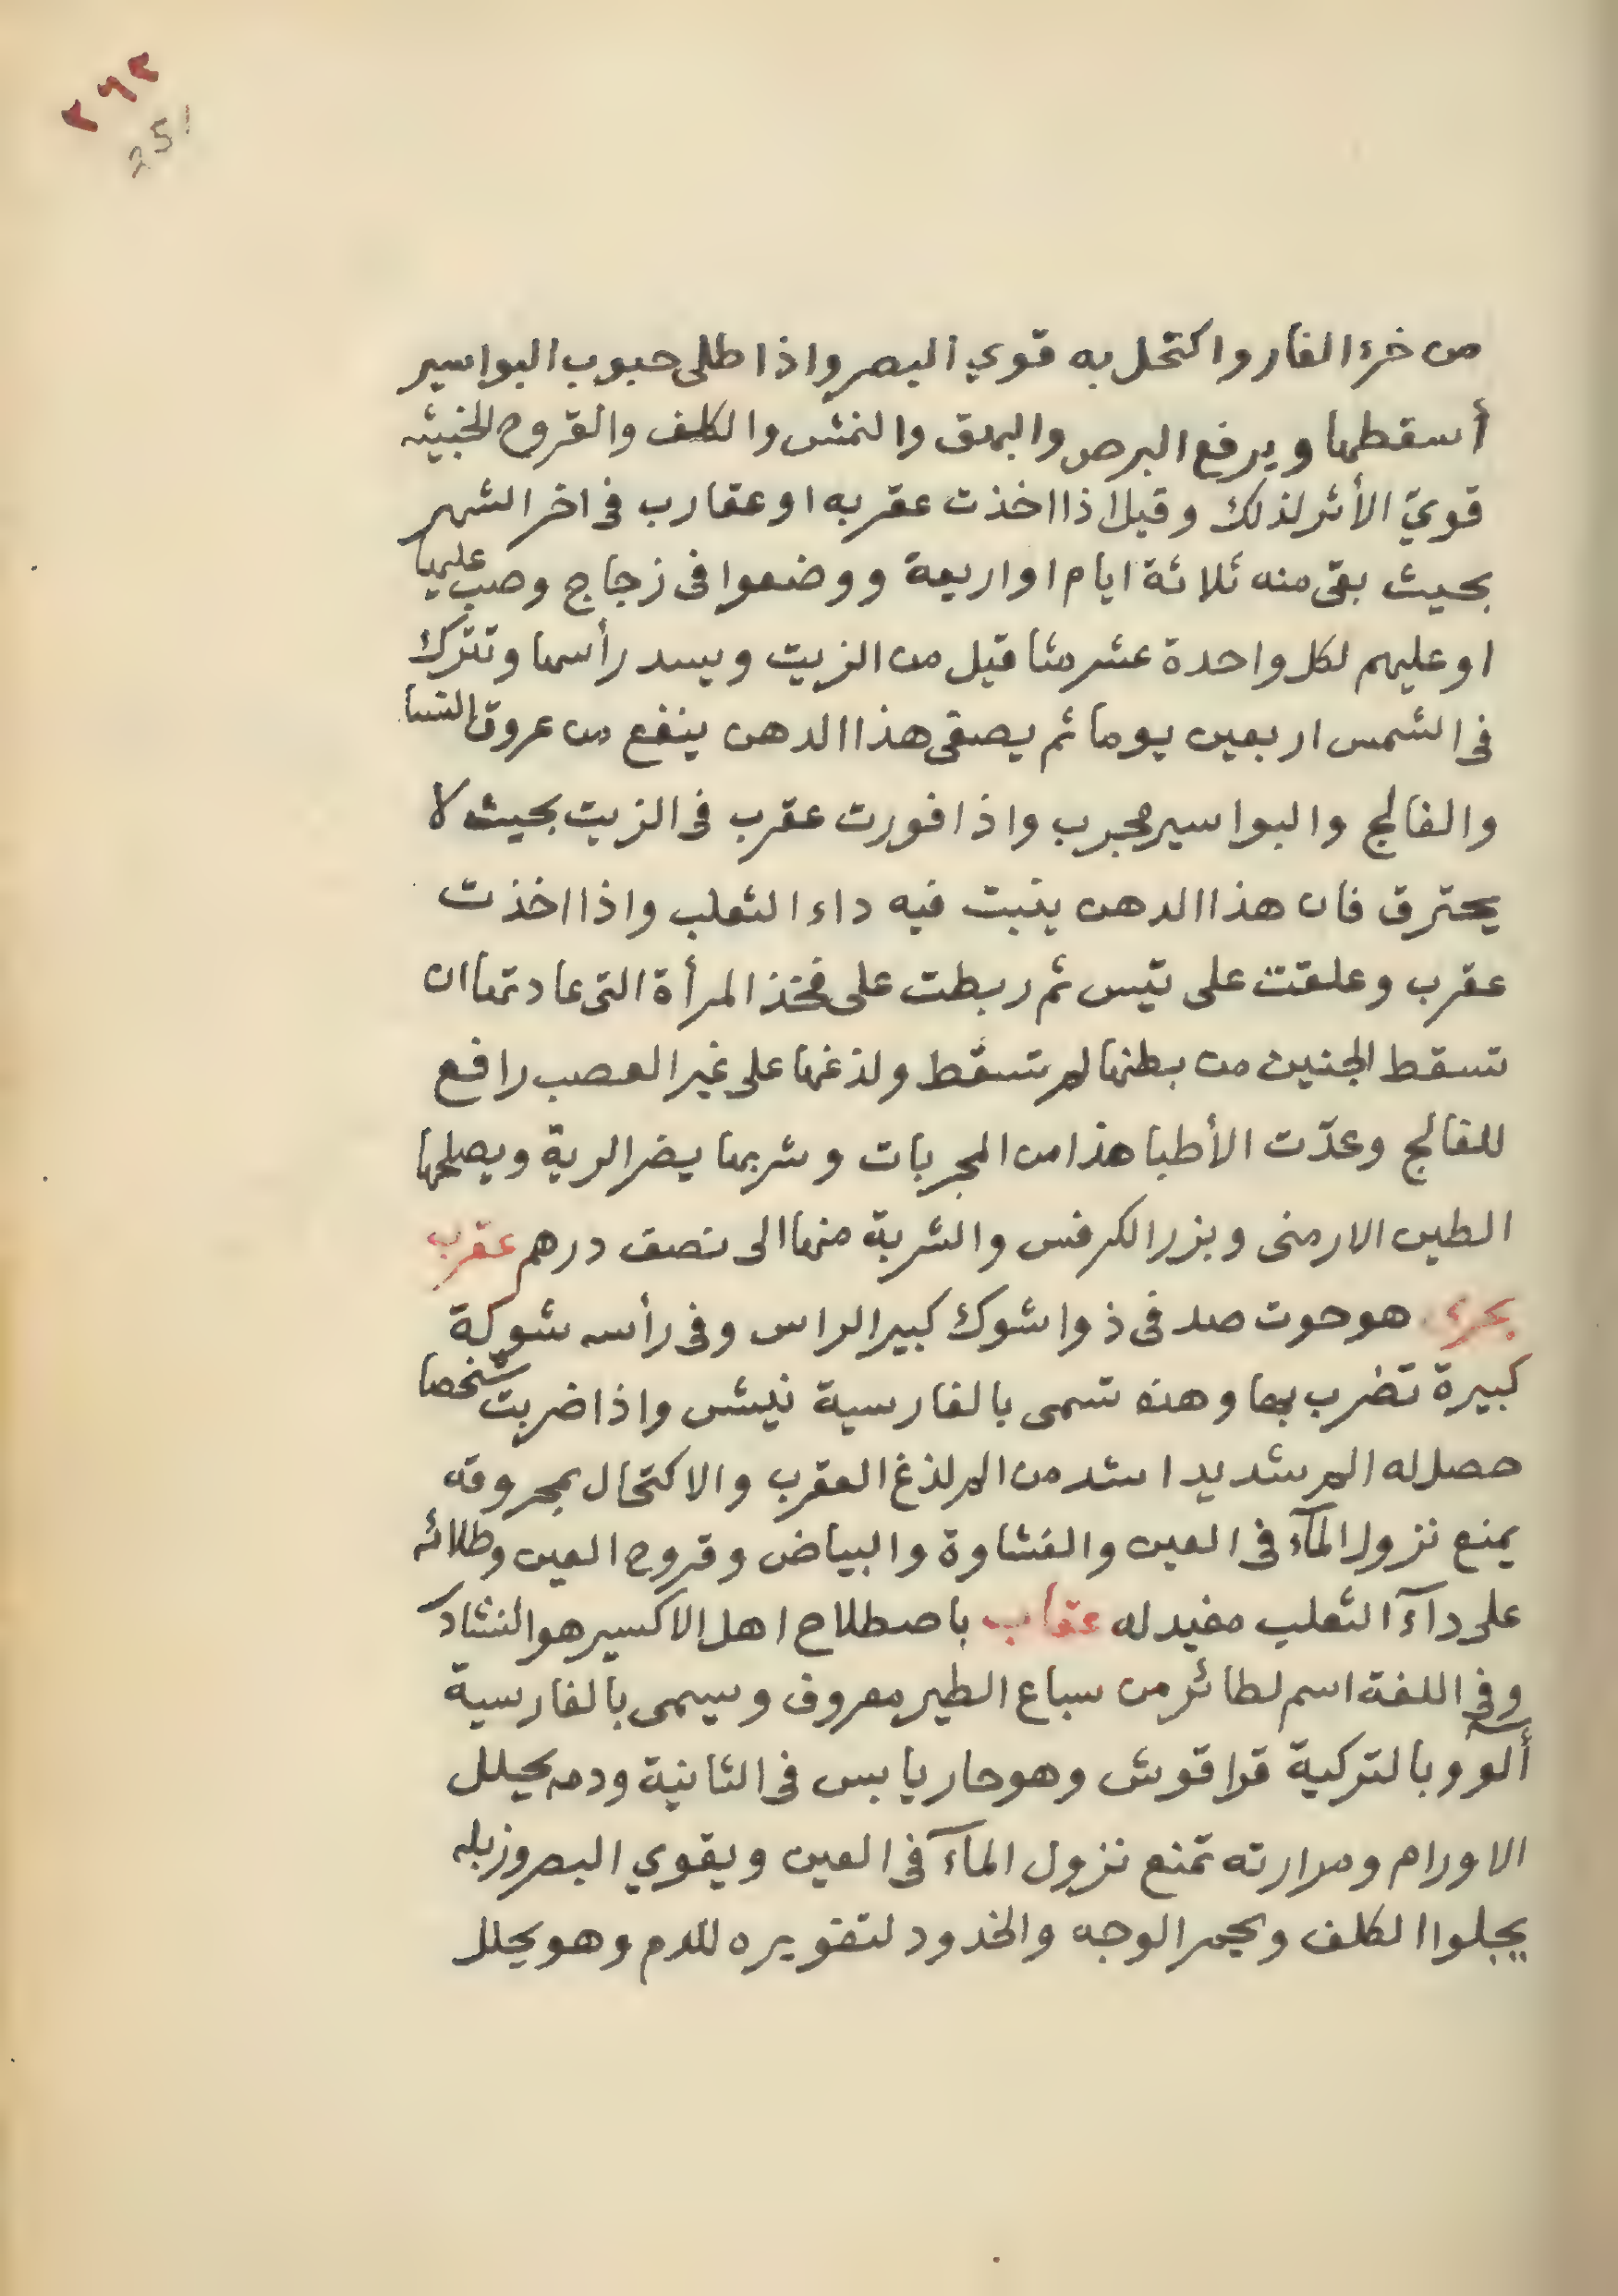 ٢٩٢
251
من خرء الفار واكتحل به قوي البصر واذا طلى حبوب البواسير
أسقطها ويرفع البرص والبهق والنمش والكلف والقروح الخبيثه
قويّ الأثر لذلك وقيل اذا اخذت عقربه او عقارب فى اخر الشهر
بحيث بقى منه ثلاثة ايام او اربعة ووضعوا فى زجاج وصب عليها
او عليهم لكل واحدة عشر مثاقيل من الزيت ويسد رأسها وتترك
فى الشمس اربعين يوما ثم يصفى هذا الدهن ينفع من عروق النسا
والفالج والبواسير مجرب واذا فورت عقرب فى الزيت بحيث لا
يحترق فان هذا الدهن ينبت فيه داء الثعلب واذا اخذت
عقرب وعلقت على تيس ثم ربطت على فخذ المرأة التى عادتها ان
تسقط الجنين من بطنها لم تسقط ولذغها على غير العصب رافع
للفالج وعدّت الأطبا هذا من المجربات وشربها يضر الرية ويصلحها
الطين الارمنى وبزر الكرفس والشربة منها الى نصف درهم عقرب
بحري هو حوت صدفى ذوا شوك كبير الراس وفى رأسه شوكة
كبيرة تضرب بها وهذه تسمى بالفارسية نيش واذا ضربت شخصا
حصل له الم شديد اشد من الم لذغ العقرب والاكتحال بمحروقه
يمنع نزول المآء فى العين والغشاوة والبياض وقروح العين وطلائه
على دآء الثعلب مفيد له عقاب باصطلاح اهل الاكسير هو النشادر
وفى اللغة اسم لطائر من سباع الطير معروف ويسمى بالفارسية
ألّه وبالتركية قراقوش وهو حار يابس فى الثانية ودمه يحلل
الاورام ومرارته تمنع نزول المآء فى العين ويقوي البصر وزبله
يجلوا الكلف ويحمر الوجه والخدود لتفويره للدم وهو يحلل